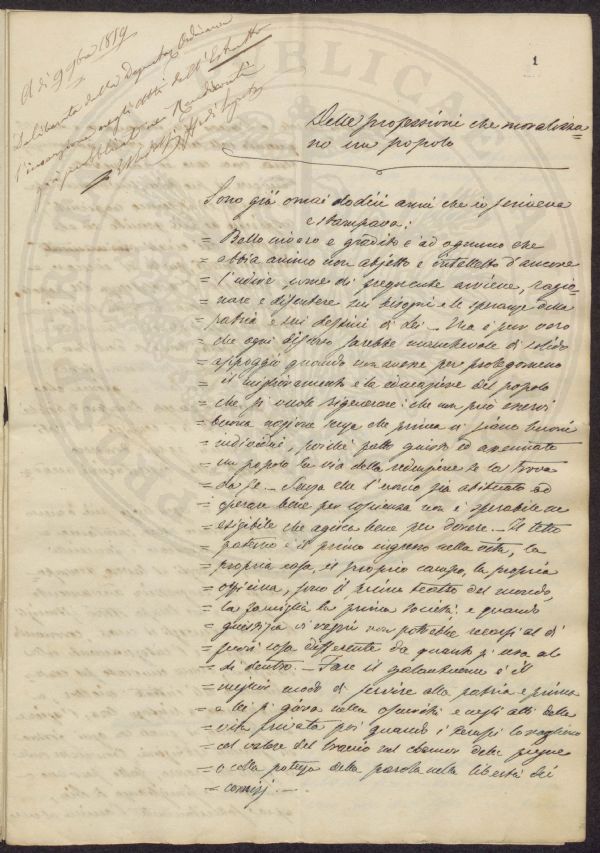 1
A dì 9 9bre 1859
Deliberata dalla Deputaz Ordinaria
l'inserzione negli Atti dell'Estratto
già pubblicato nei Rendiconti
Delle professioni che moralizza=
no un popolo
Sono già omai dodici anni che io scriveva
e stampava:
= Bello invero e gradito è ad ognuno che
= abbia animo non abjetto e intelletto d'amore
= l'udire come di frequente avviene, ragio=
= nare e discutere sui bisogni e le speranze della
= patria e sui destini di lei – Ma è pur vero
= che ogni discorso sarebbe manchevole di solido
= appoggio quando non avesse per prolegomeno
= il miglioramento e la educazione del popolo
= che si vuole rigenerare: che non può esservi
= buona nazione senza che prima vi siano buoni
= individui, poichè fatto giusto ed assennato
= un popolo la via della redenzione se la trova
= da se – Senza che l'uomo sia abituato ad
= operare bene per
= esigibile che agisca bene per dovere – Il tetto
= paterno è il primo ingresso nella vita, la
= propria casa, il proprio campo, la propria
= officina, sono il primo teatro del mondo,
= la famiglia la prima società, e quando
= giustizia vi regni non potrebbe recarsi al di
= fuori cosa differente da quanto si usa al
= di dentro – Fare il galantuomo è il
= miglior modo di servire alla patria e prima
= a lei si giova nella oscurità e negli atti della
= vita privata poi quando i tempi lo vogliono
= col valore del braccio col del
= o colla potenza della parola nella libertà dei
= comizj. –